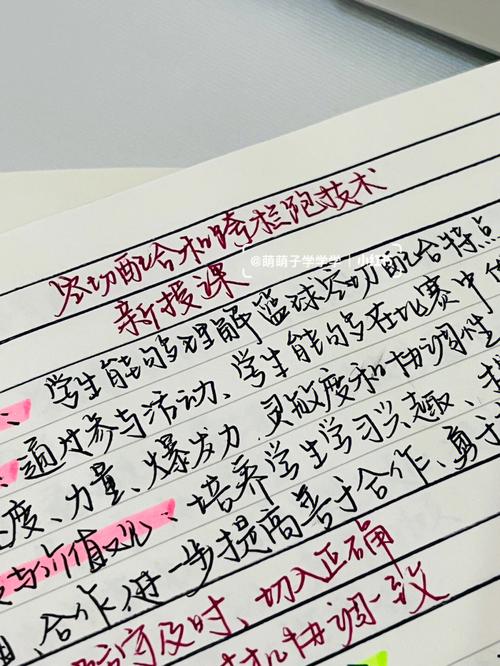 空切配合和跨栏跑技术
@萌萌子学学学 小红书
新授课
学生能够理解篮球空切配合特点
通过参与活动、学生能够在比赛中
速度、力量、爆发力、灵敏度和协调性
与价值观、培养学生学习兴趣、
合作、进一步提高善于合作、勇于
及时、切入正确
协调一致